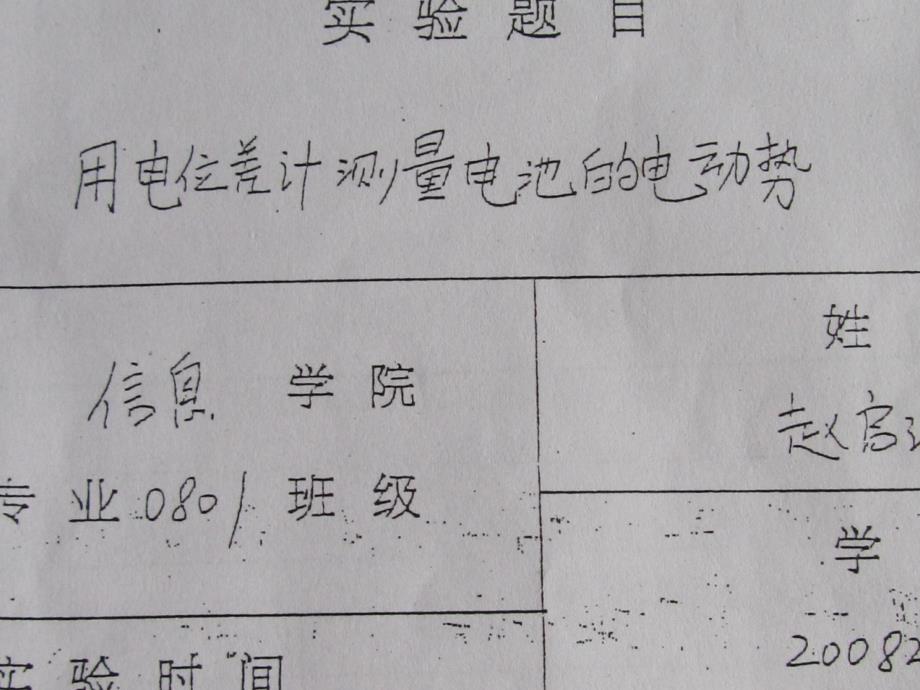 实验题目
用电位差计测量电池的电动势
信息 学院
专业0801班级
姓
赵启
学
20082
实验时间